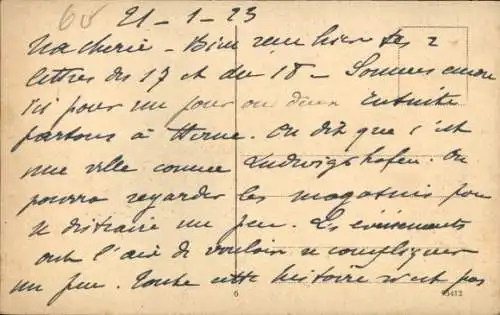 60
21-1-23
Ma cherie - Bien reçu hier tes 2
lettres des 17 et du 18 - Sommes encore
ici pour un jour ou deux Ensuite
partons à Herne. On dit que c'est
une ville comme Ludwigshafen. On
pourra regarder les magasins pour
se distraire un peu. Les événements
ont l'air de vouloir se compliquer
un peu. Toute cette histoire n'est pas
6